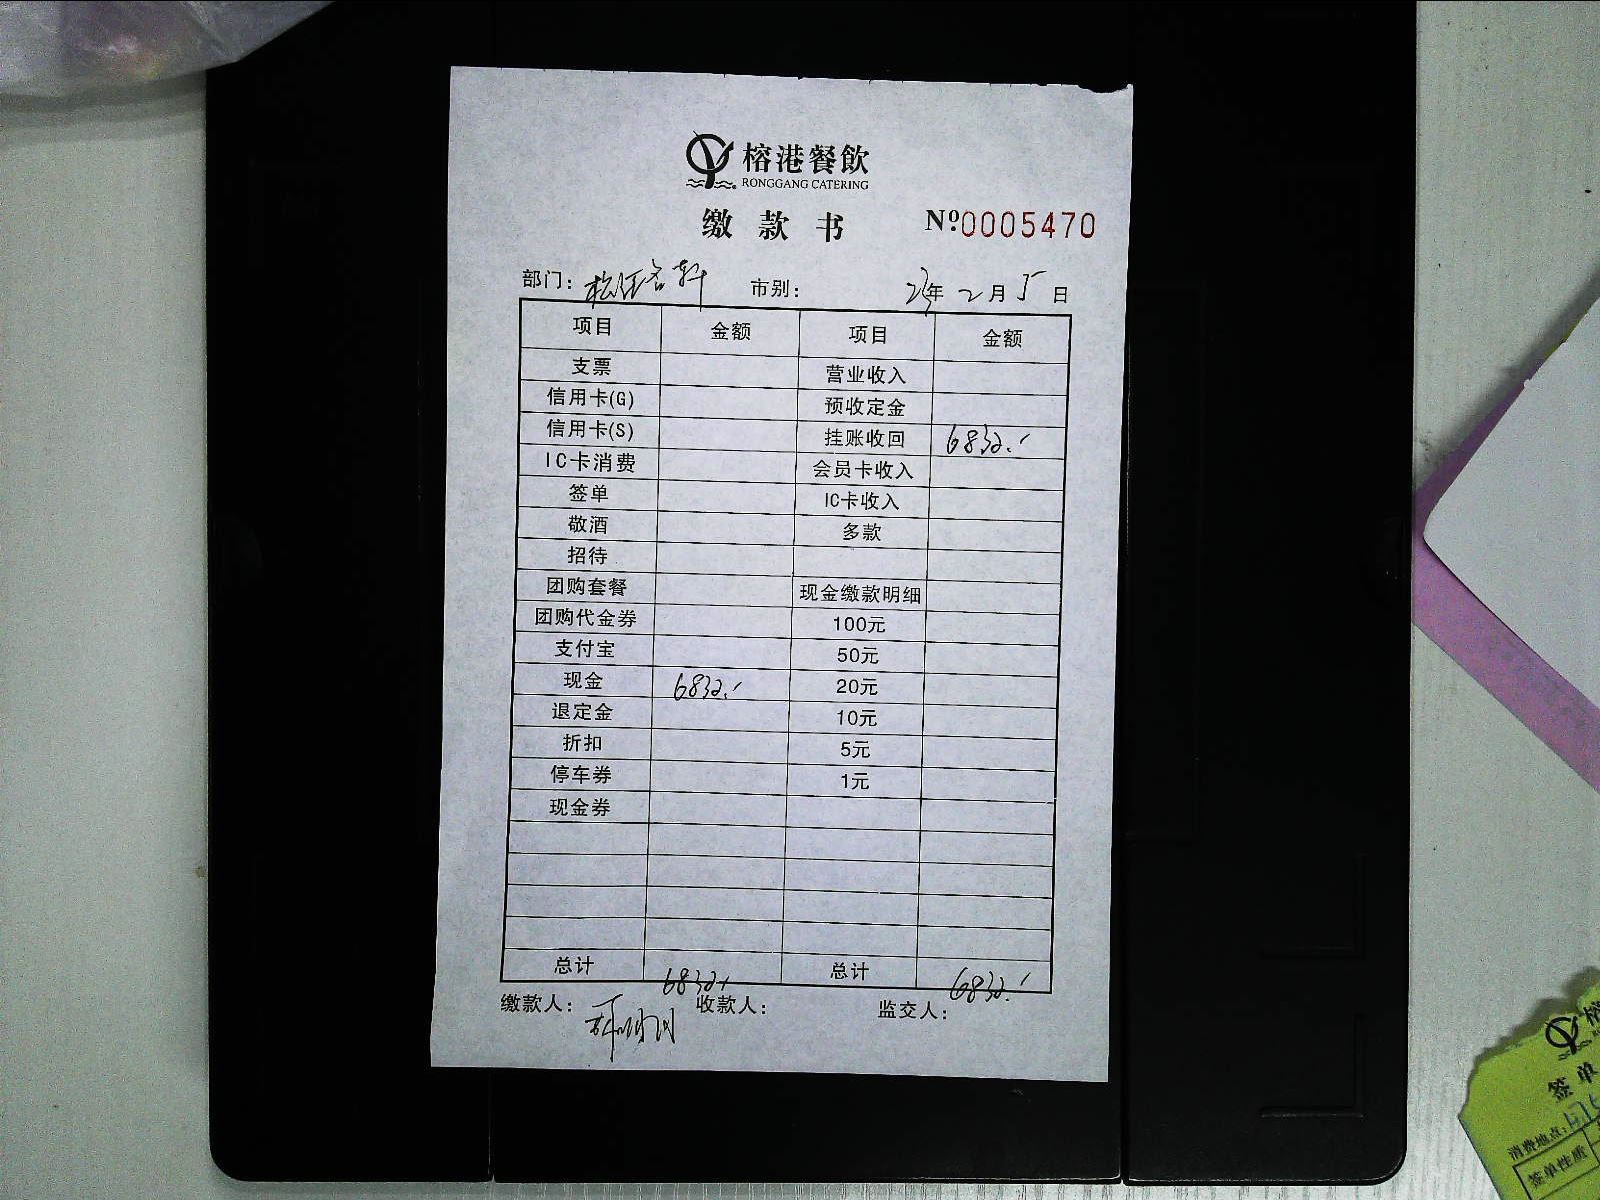 榕港餐飲
RONGGANG CATERING
缴款书 №:0005470
部门: 市别: 23年 2月 5日
项目 金额 项目 金额
支票 营业收入
信用卡(G) 预收定金
信用卡(S) 挂账收回 6832.-
IC卡消费 会员卡收入
签单 IC卡收入
敬酒 多款
招待
团购套餐 现金缴款明细
团购代金券 100元
支付宝 50元
现金 6832.- 20元
退定金 10元
折扣 5元
停车券 1元
现金券
总计 6832.- 总计 6832.-
缴款人: 收款人: 监交人:
签单
消费地点:
签单性质